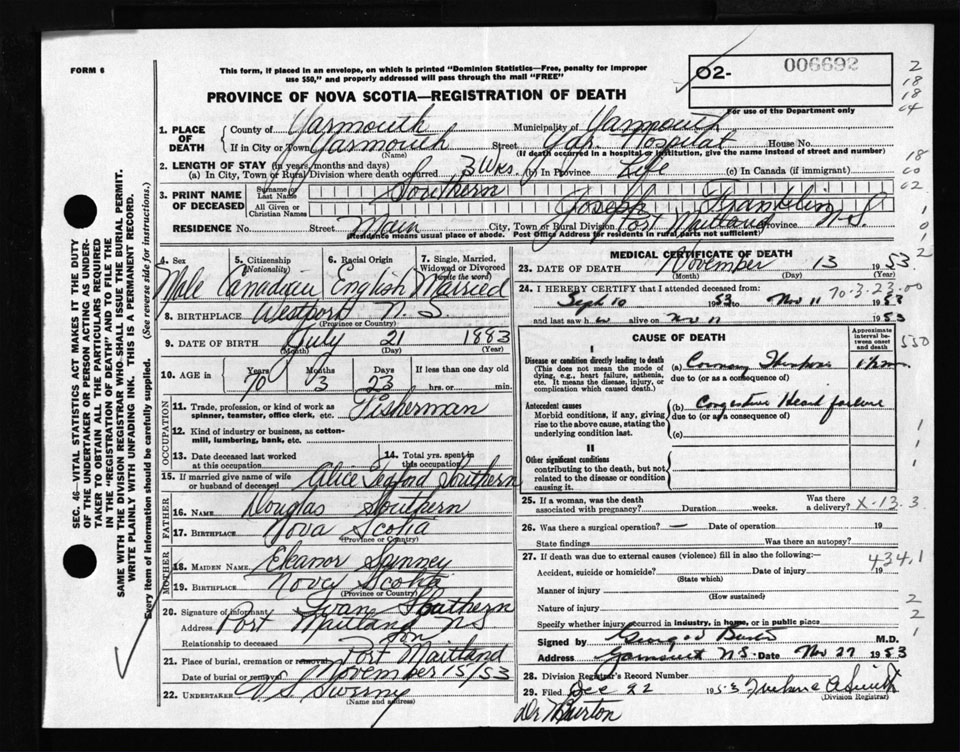 FORM 6
This form, if placed in an envelope, on which is printed "Dominion Statistics—Free, penalty for improper
use $50," and properly addressed will pass through the mail "FREE"
02- 006692
For use of the Department only
PROVINCE OF NOVA SCOTIA—REGISTRATION OF DEATH
1. PLACE OF DEATH { County of Yarmouth Municipality of Yarmouth
If in City or Town Yarmouth (Name) Street Yar. Hospital House No.
(If death occurred in a hospital or institution, give the name instead of street and number)
2. LENGTH OF STAY (in years, months and days)
(a) In City, Town or Rural Division where death occurred 3 Wks. (b) In Province Life (c) In Canada (if immigrant)
3. PRINT NAME OF DECEASED { Surname or Last Name Southern
All Given or Christian Names Joseph Franklin
RESIDENCE No. Street Main City, Town or Rural Division Port Maitland Province N.S.
(Residence means usual place of abode. Post Office Address for residents in rural parts not sufficient)
4. Sex Male
5. Citizenship (Nationality) Canadian
6. Racial Origin English
7. Single, Married, Widowed or Divorced (write the word) Married
8. BIRTHPLACE Westport N. S.
(Province or Country)
9. DATE OF BIRTH July 21 1883
(Month) (Day) (Year)
10. AGE in { Years 70 Months 3 Days 23 If less than one day old
hrs. or min.
OCCUPATION
11. Trade, profession, or kind of work as spinner, teamster, office clerk, etc. Fisherman
12. Kind of industry or business, as cotton-mill, lumbering, bank, etc.
13. Date deceased last worked at this occupation
14. Total yrs. spent in this occupation
15. If married give name of wife or husband of deceased Alice Southern
FATHER
16. Name Douglas Southern
17. Birthplace Nova Scotia
(Province or Country)
MOTHER
18. Maiden Name Eleanor Sunney
19. Birthplace Nova Scotia
(Province or Country)
20. Signature of informant Ivan Southern
Address Port Maitland NS
Relationship to deceased Son
21. Place of burial, cremation or removal Port Maitland
Date of burial or removal November 15/53
22. UNDERTAKER V. S. Sweeny
(Name and address)
MEDICAL CERTIFICATE OF DEATH
23. DATE OF DEATH November 13 1953
(Month) (Day)
24. I HEREBY CERTIFY that I attended deceased from:
70-3-23-00
Sept 10 1953 to Nov 11 1953
and last saw h alive on Nov 11 1953
CAUSE OF DEATH
Approximate interval between onset and death
I
Disease or condition directly leading to death
(This does not mean the mode of dying, e.g., heart failure, asthenia, etc. It means the disease, injury, or complication which caused death.)
(a) Coronary Thrombosis
due to (or as a consequence of)
Antecedent causes
Morbid conditions, if any, giving rise to the above cause, stating the underlying condition last.
(b) Congestive Heart failure
due to (or as a consequence of)
(c)
II
Other significant conditions
contributing to the death, but not related to the disease or condition causing it.
25. If a woman, was the death associated with pregnancy? Duration weeks. Was there a delivery? X-13-3
26. Was there a surgical operation? — Date of operation 19
State findings Was there an autopsy?
27. If death was due to external causes (violence) fill in also the following:—
434.1
Accident, suicide or homicide? Date of injury 19
(State which)
Manner of injury
(How sustained)
Nature of injury
Specify whether injury occurred in industry, in home, or in public place
Signed by M.D.
Address Yarmouth N.S. Date Nov 27 1953
28. Division Registrar's Record Number
29. Filed Dec 22 1953
(Division Registrar)
Dr Burton
SEC. 46—VITAL STATISTICS ACT MAKES IT THE DUTY
OF THE UNDERTAKER OR PERSON ACTING AS UNDER-
TAKER TO OBTAIN ALL THE PARTICULARS REQUIRED
IN THE "REGISTRATION OF DEATH" AND TO FILE THE
SAME WITH THE DIVISION REGISTRAR WHO SHALL ISSUE THE BURIAL PERMIT.
WRITE PLAINLY WITH UNFADING INK. THIS IS A PERMANENT RECORD.
Every item of information should be carefully supplied. (See reverse side for instructions.)
2
18
18
04
18
00
02
1
0
1
2
550
1
1
1
2
2
1